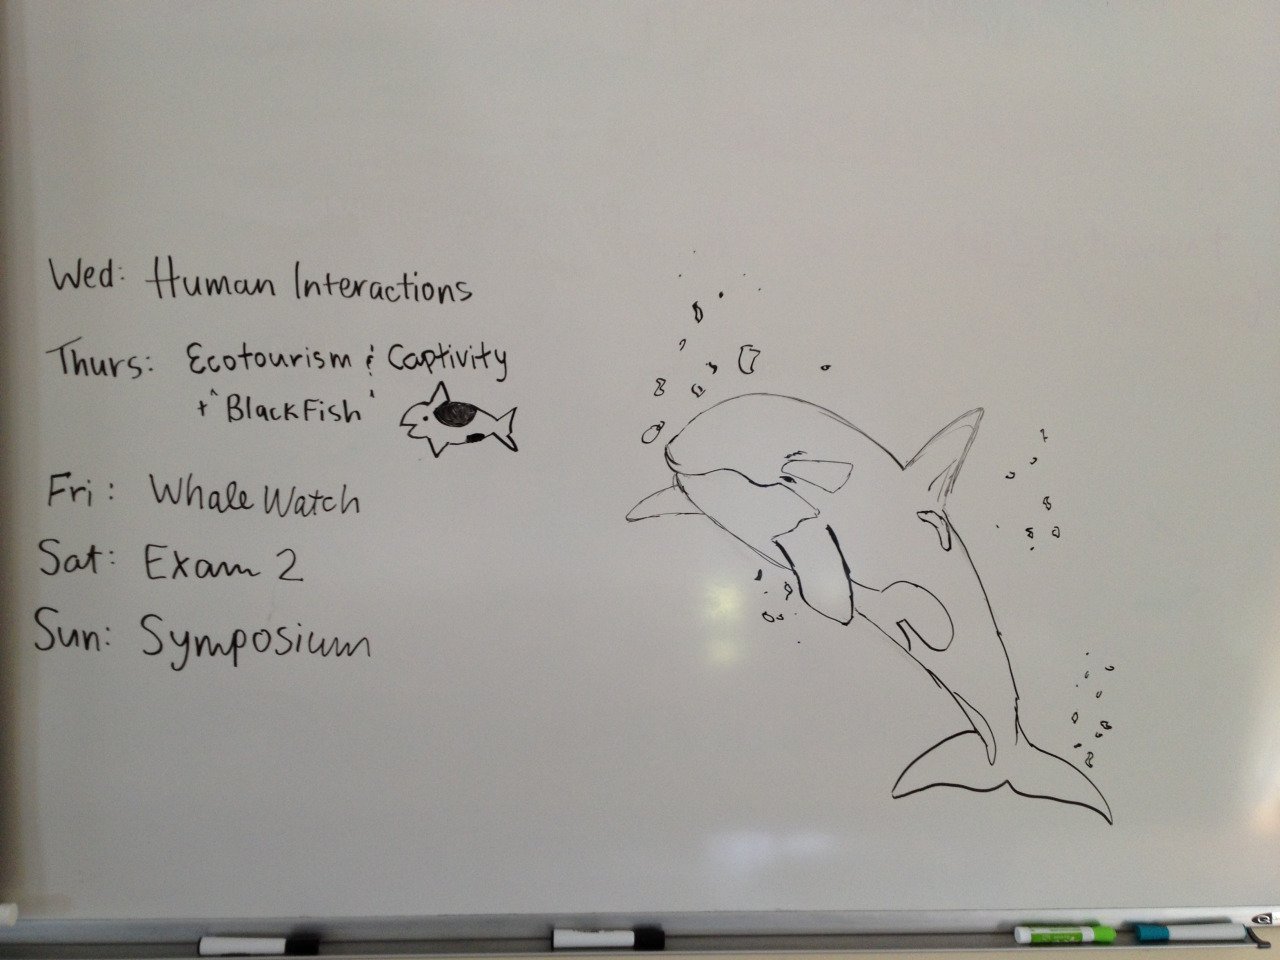 Wed: Human Interactions
Thurs: Ecotourism & Captivity
+ "BlackFish"
Fri: Whale Watch
Sat: Exam 2
Sun: Symposium